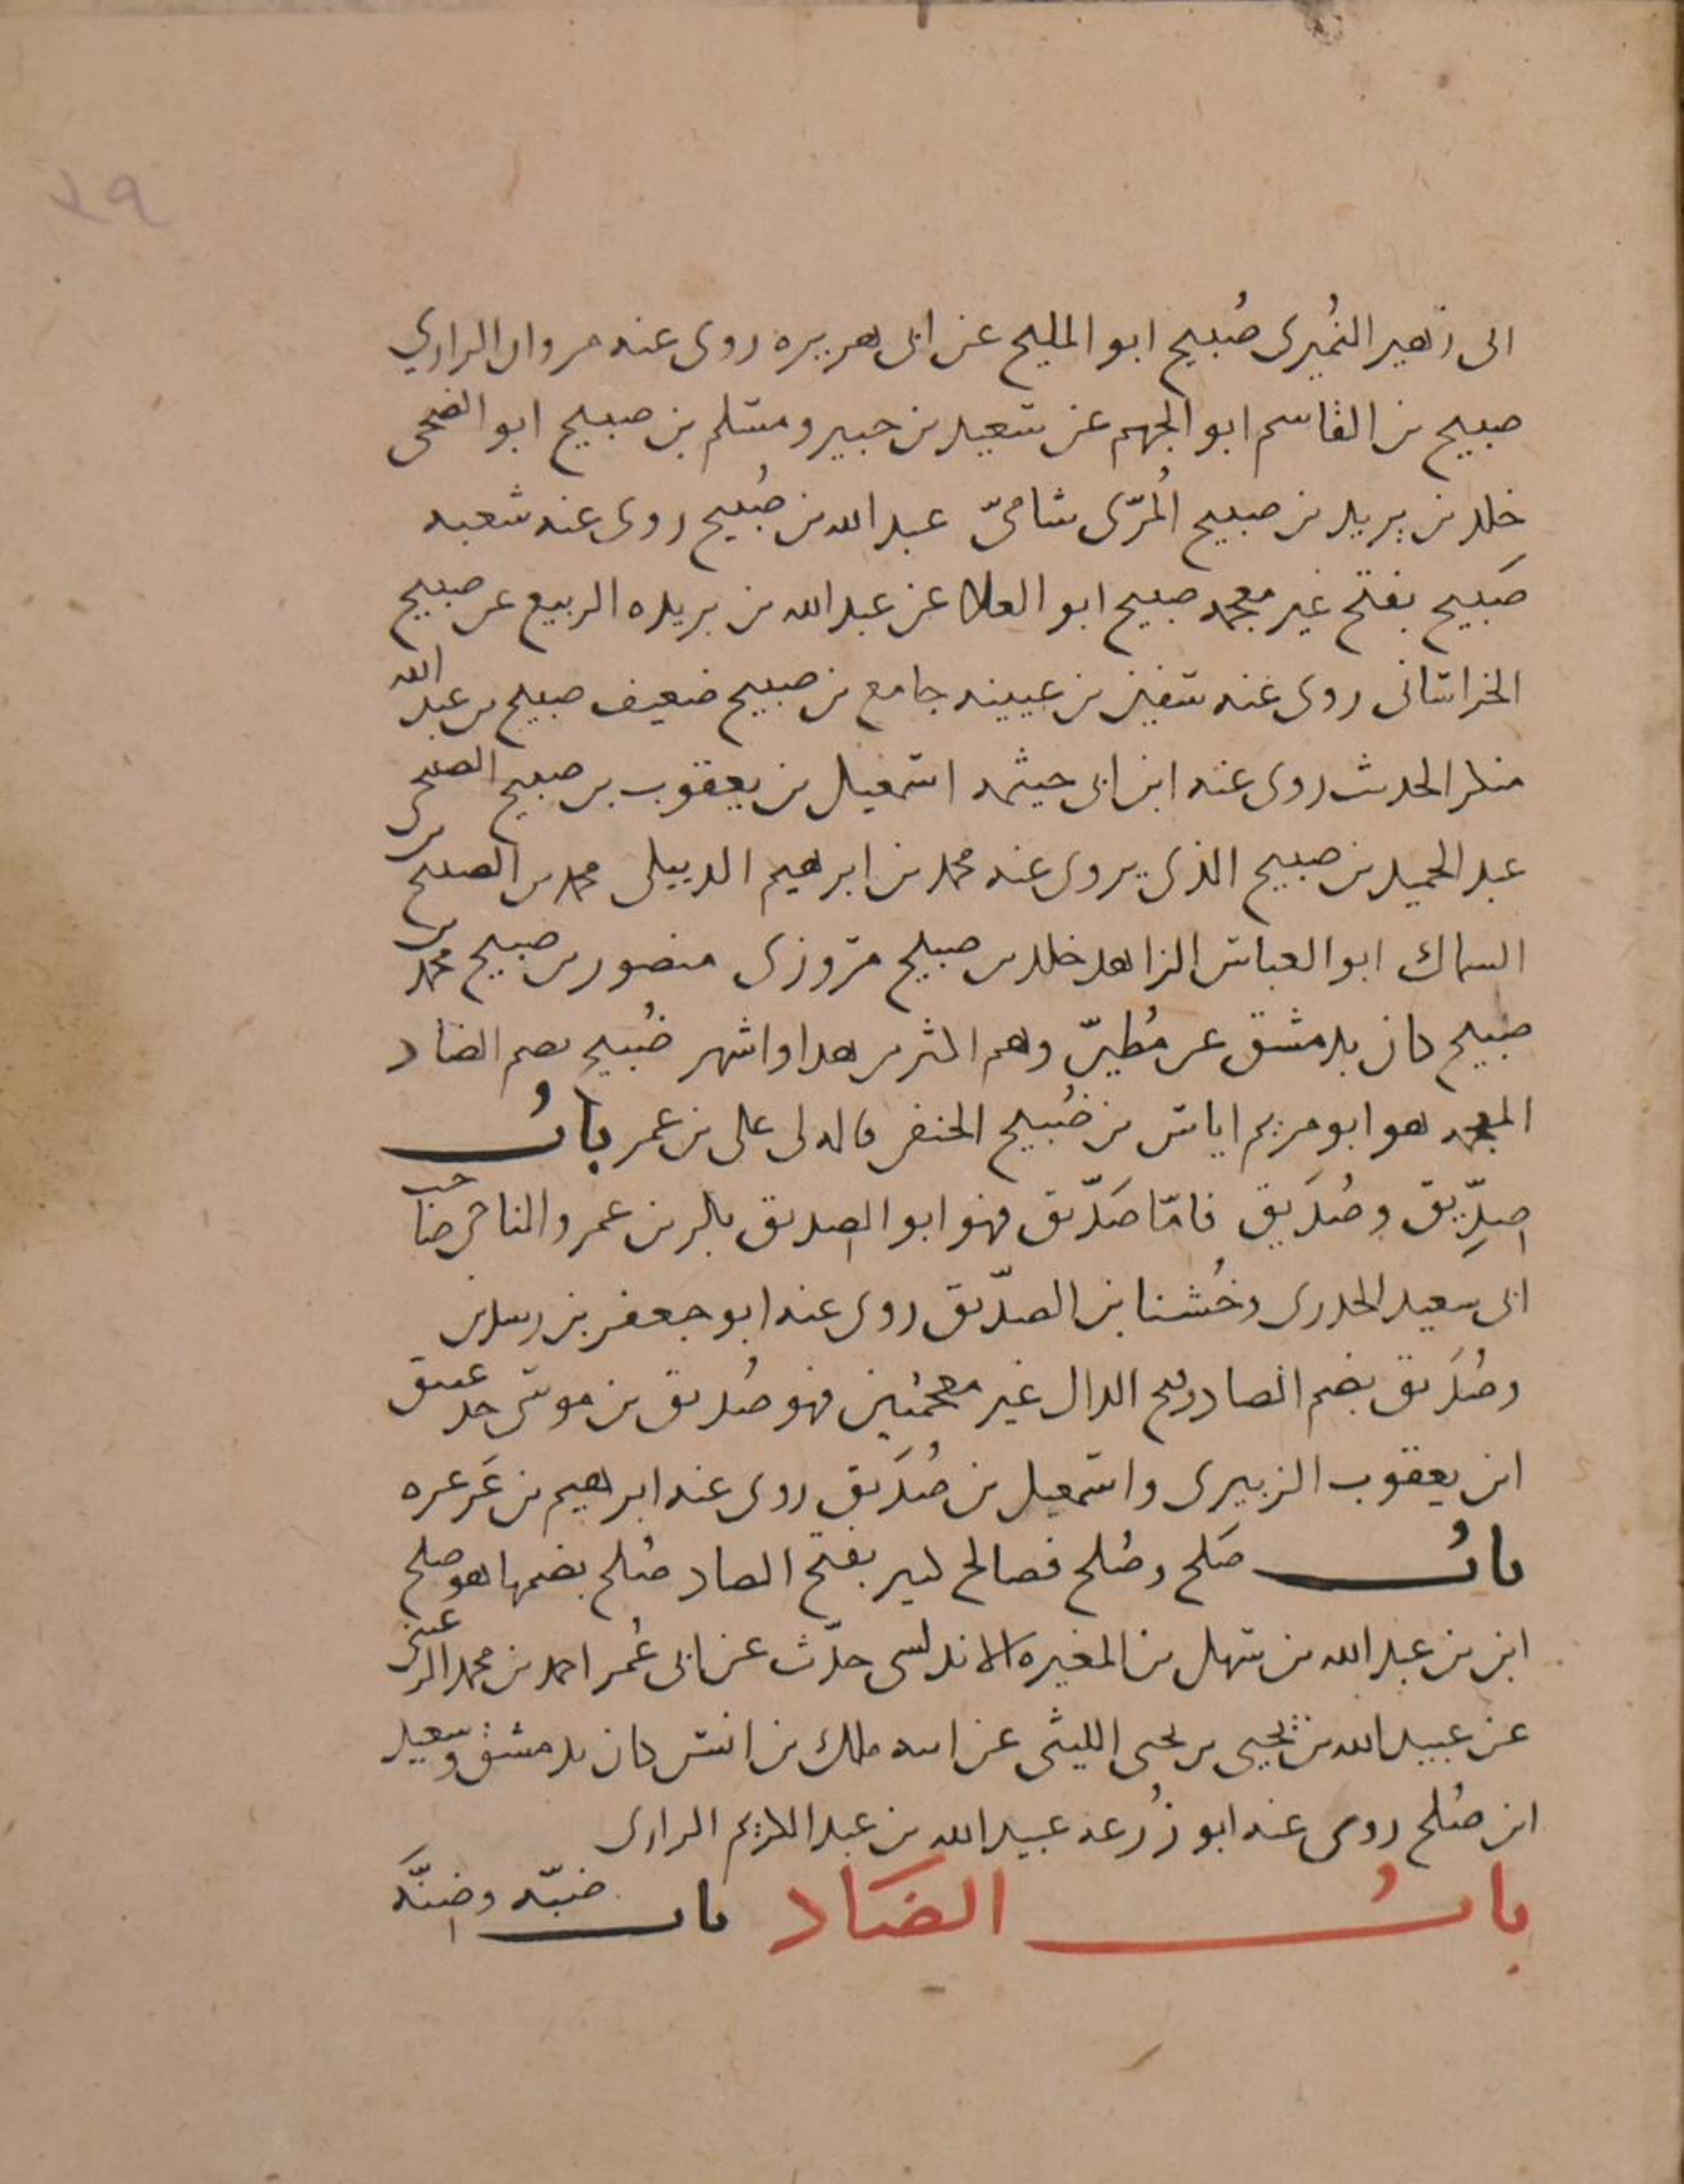 ٢٩
ابى زهير النُميرى صُبيح ابو المليح عن ابى هريره روى عنه مروان الرازي
صبيح بن القاسم ابو الجهم عن سعيد بن جبير ومسلم بن صبيح ابو الضحى
خلد بن يزيد بن صبيح المُرّى شامىّ عبد الله بن صُبيح روى عنه شعبه
صَبيح بفتح غير معجمه صبيح ابو العلا عن عبد الله بن بريده الربيع بن صبيح
الخراسانى روى عنه سفين بن عيينه جامع بن صبيح ضعيف صبيح بن عبد الله
منكر الحديث روى عنه ابن ابى خيثمه اسمعيل بن يعقوب بن صبيح الصبيحى
عبد الحميد بن صبيح الذى يروى عنه محمد بن ابرهيم الديبلى محمد بن الصبيح بن
السماك ابو العباس الزاهد خلد بن صبيح مروزى منصور بن صبيح محمد بن
صبيح كان بدمشق عن مُطيرّ وهم اكثر من هذا واشهر ضُبيح بضم الضاد
المعجمه هو ابو مريم اياس بن ضُبيح الحنفى قاله لى على بن عمر بابُ
صِدِّيق وصُدَيق فامّا صَدّيق فهو ابو الصديق بكر بن عمرو الناجى صاحب
ابى سعيد الخدرى وخُشنا بن الصدّيق روى عنه ابو جعفر بن رسلان
وصُدَيق بضم الصاد وفتح الدال غير معجمتين فهو صُديق بن موسى جد عتيق
ابن يعقوب الزبيرى واسمعيل بن صُدَيق روى عنه ابرهيم بن عَرعره
بابُ صَلح وصُلح فصالح كثير بفتح الصاد صُلح بضمها هو صلح
ابن بن عبد الله بن سهل بن المغيره الاندلسى حدّث عن ابى عُمر احمد بن محمد الرعينى
عن عبيد الله بن يحيى بن يحيى الليثى عن ابيه ملك بن انس كان بدمشق وسعيد
ابن صُلح روى عنه ابو زُرعه عبيد الله بن عبد الكريم الرازى
بابُ الضَاد باب ضبّه وضِنَّه